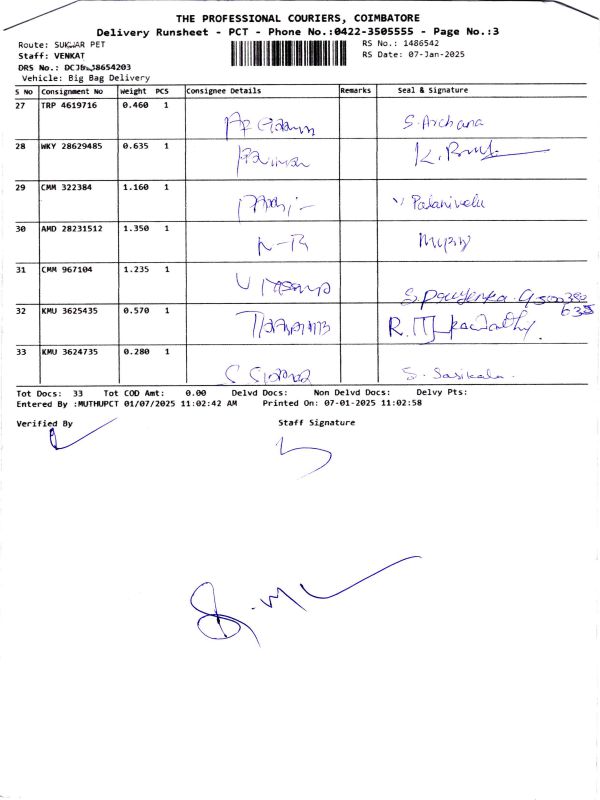 THE PROFESSIONAL COURIERS, COIMBATORE
Delivery Runsheet - PCT - Phone No.:0422-3505555 - Page No.:3
Route: SUKWAR PET
RS No.: 1486542
Staff: VENKAT
RS Date: 07-Jan-2025
DRS No.:
Vehicle: Big Bag Delivery
S No Consignment No Weight PCS Consignee Details Remarks Seal & Signature
27 TRP 4619716 0.460 1 S. Archana
28 WKY 28629485 0.635 1 K.
29 CMM 322384 1.160 1 Palanivelu
30 AMD 28231512 1.350 1
31 CMM 967104 1.235 1
32 KMU 3625435 0.570 1 R.
33 KMU 3624735 0.280 1 S. Sasikala
Tot Docs: 33 Tot COD Amt: 0.00 Delvd Docs: Non Delvd Docs: Delvy Pts:
Entered By :MUTHUPCT 01/07/2025 11:02:42 AM Printed On: 07-01-2025 11:02:58
Verified By Staff Signature